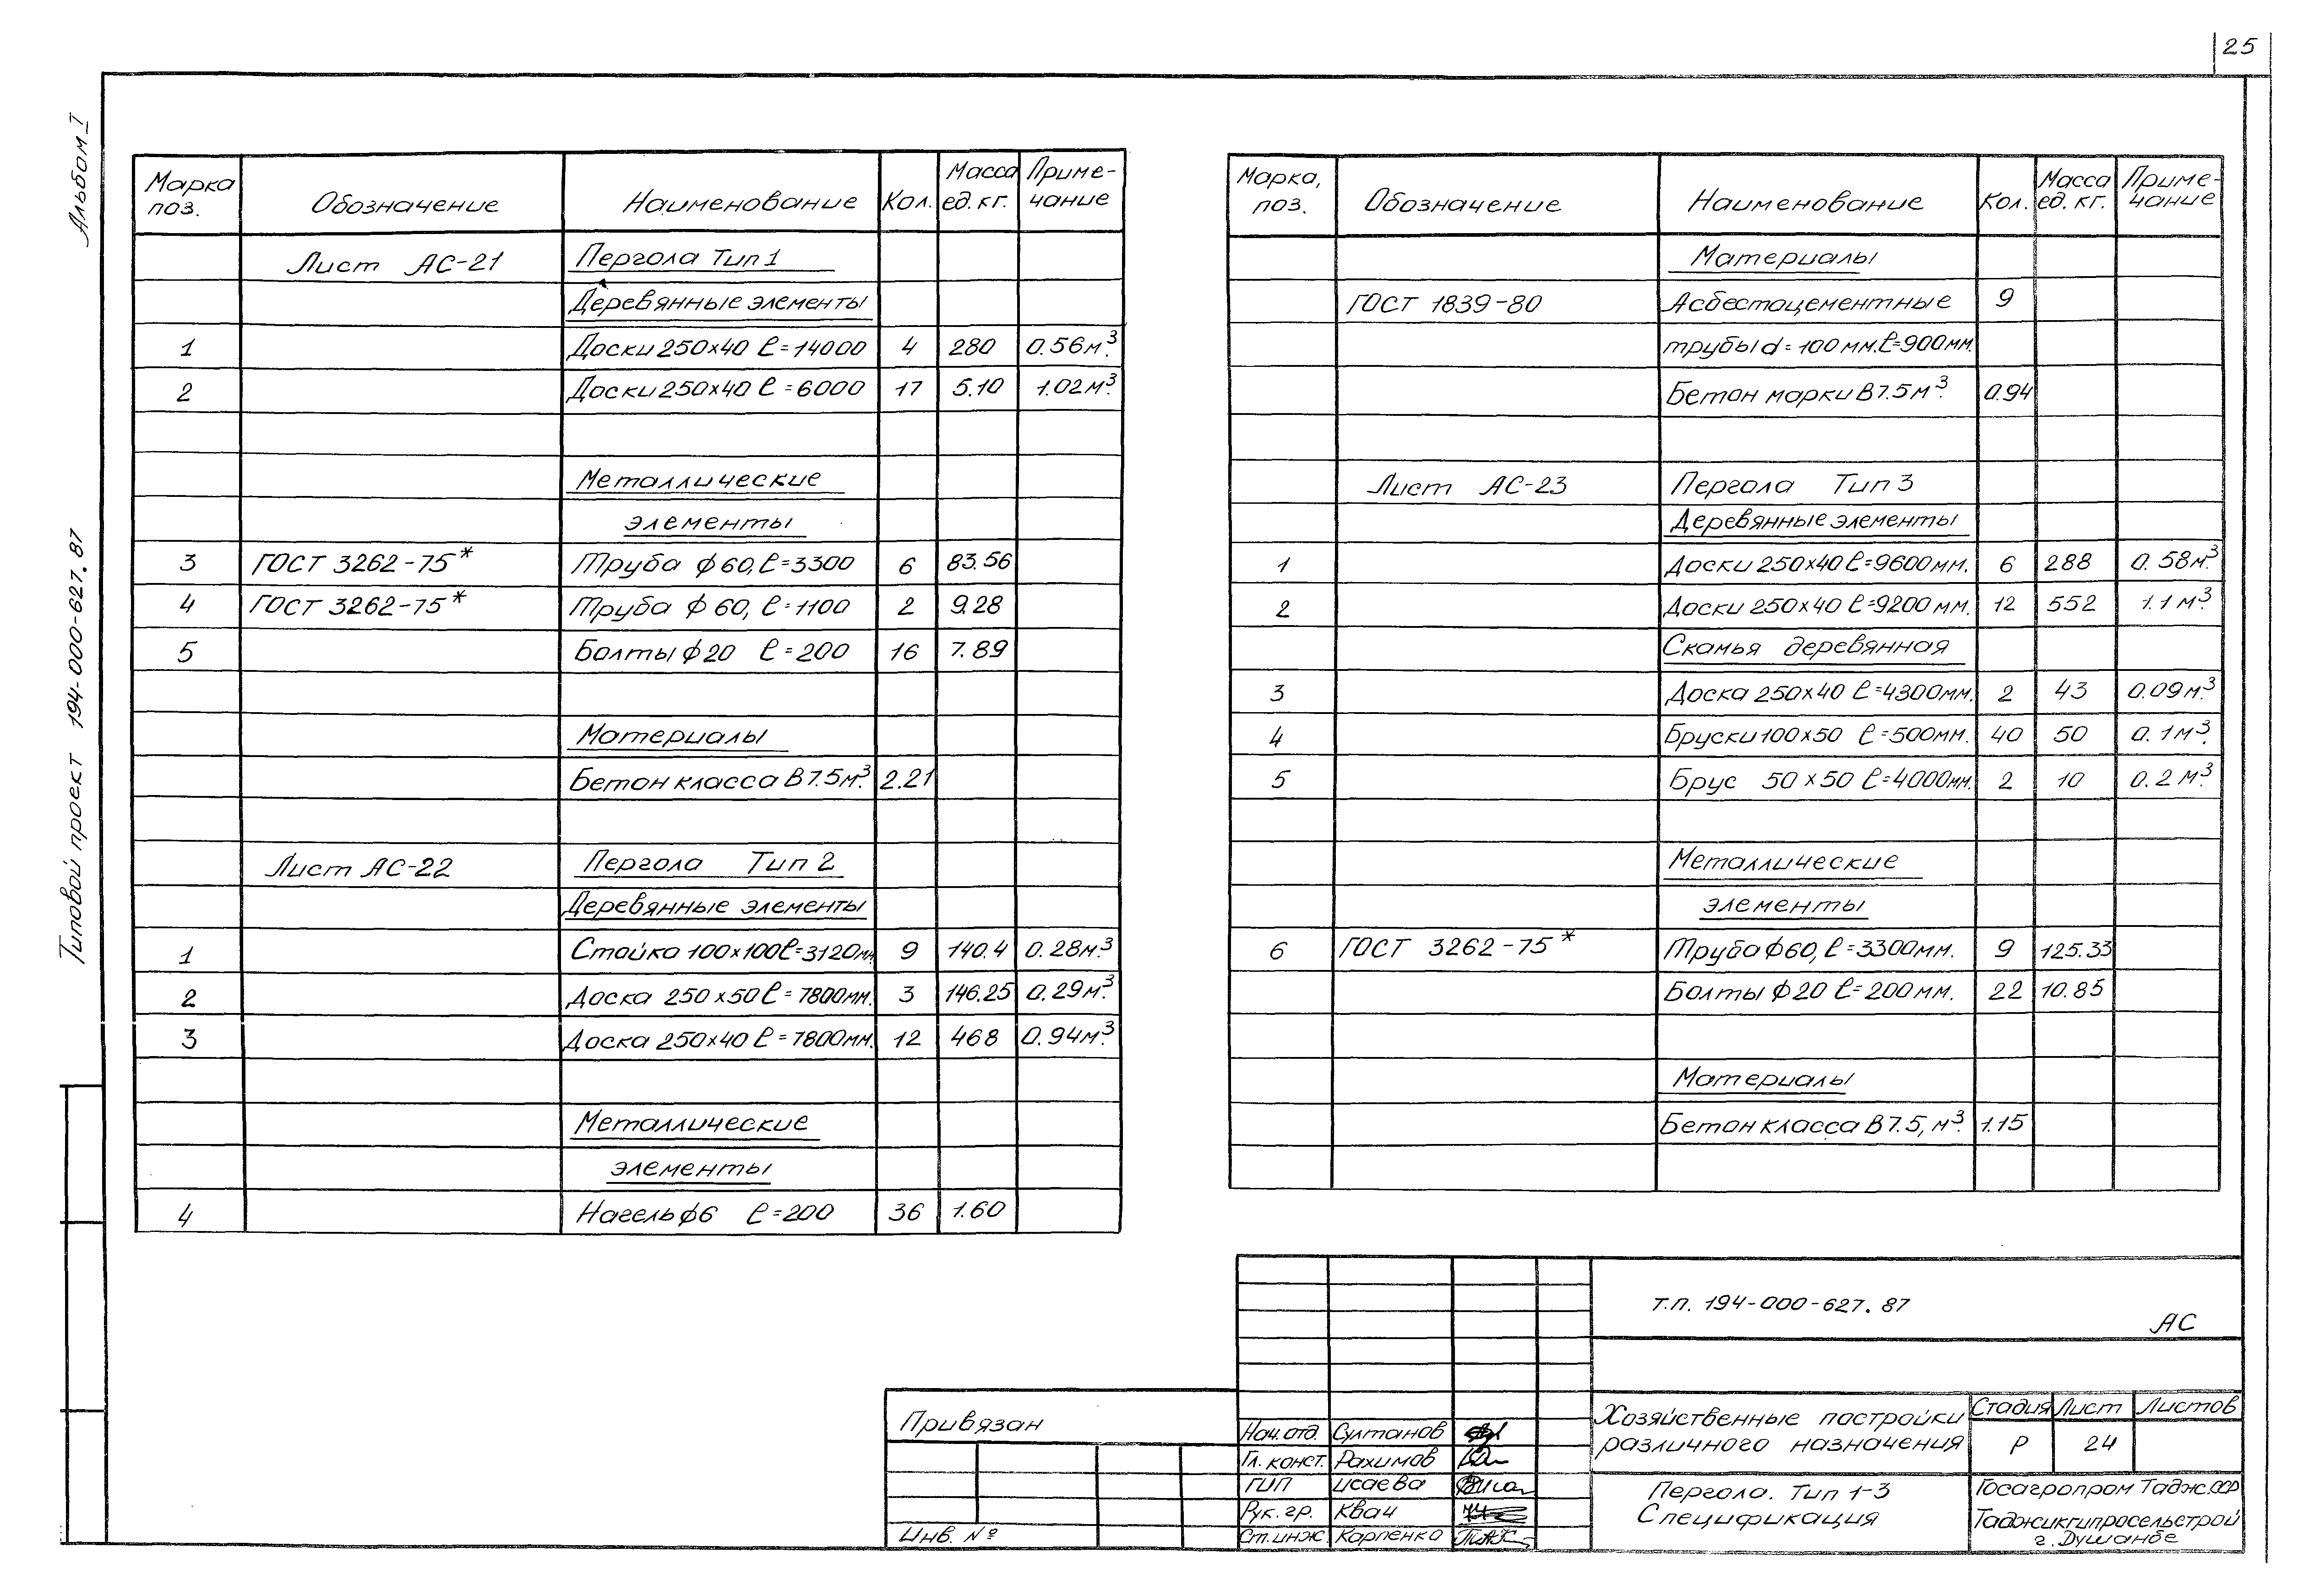 25
Альбом I
Типовой проект 194-000-627.87
Марка поз. Обозначение Наименование Кол. Масса ед. кг. Приме-чание
Лист АС-21 Пергола Тип 1
Деревянные элементы
1 Доски 250х40 ℓ=14000 4 280 0.56м³.
2 Доски 250х40 ℓ=6000 17 5.10 1.02м³.
Металлические
элементы
3 ГОСТ 3262-75* Труба ф60, ℓ=3300 6 83.56
4 ГОСТ 3262-75* Труба ф60, ℓ=1100 2 9.28
5 Болты ф20 ℓ=200 16 7.89
Материалы
Бетон класса В7.5м³. 2.21
Лист АС-22 Пергола Тип 2
Деревянные элементы
1 Стойка 100х100ℓ=3120мм. 9 140.4 0.28м³.
2 Доска 250х50ℓ=7800мм. 3 146.25 0.29м³.
3 Доска 250х40 ℓ=7800мм. 12 468 0.94м³.
Металлические
элементы
4 Нагель ф6 ℓ=200 36 1.60
Марка, поз. Обозначение Наименование Кол. Масса ед. кг. Приме-чание
Материалы
ГОСТ 1839-80 Асбестоцементные 9
трубы d=100мм.ℓ=900мм.
Бетон марки В7.5м³. 0.94
Лист АС-23 Пергола Тип 3
Деревянные элементы
1 Доски 250х40ℓ=9600мм. 6 288 0.58м³.
2 Доски 250х40 ℓ=9200мм. 12 552 1.1м³.
Скамья деревянная
3 Доска 250х40 ℓ=4300мм. 2 43 0.09м³.
4 Бруски 100х50 ℓ=500мм. 40 50 0.1м³.
5 Брус 50х50 ℓ=4000мм. 2 10 0.2м³.
Металлические
элементы
6 ГОСТ 3262-75* Труба ф60, ℓ=3300мм. 9 125.33
Болты ф20 ℓ=200мм. 22 10.85
Материалы
Бетон класса В7.5, м³. 1.15
Т.П. 194-000-627.87
АС
Привязан
Инв. №
Нач.отд. Султанов
Гл. конст. Рахимов
ГИП Исаева
Рук. гр. Квач
Ст.инж. Карпенко
Хозяйственные постройки
различного назначения
Стадия Лист Листов
Р 24
Пергола. Тип 1-3
Спецификация
Госагропром Тадж.ССР
Таджикгипросельстрой
г. Душанбе